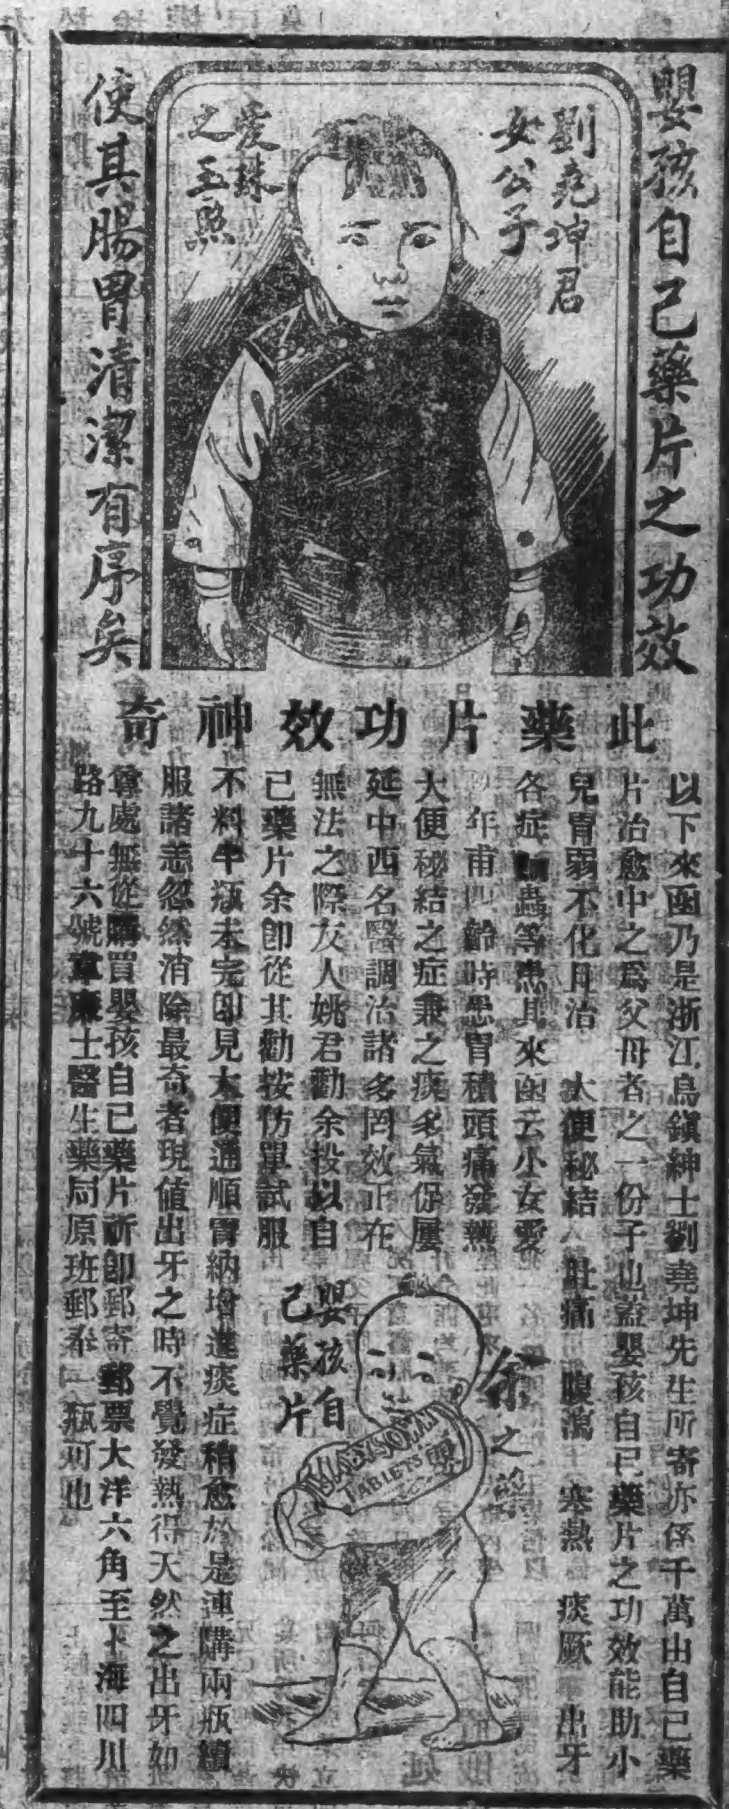 嬰孩自己藥片之功效
劉堯坤君
女公子
愛珠
之玉照
使其腸胃清潔有序矣
此藥片功效神奇
以下來函乃是浙江烏鎮紳士劉堯坤先生所寄亦係千萬由自己藥
片治愈中之爲父母者之一份子也蓋嬰孩自己藥片之功效能助小
兒胃弱不化且治 大便秘結 肚痛 腹瀉 寒熱 痰厥 出牙
各症 蟲等患其來函云小女愛
年甫四齡時患胃積頭痛發熱
大便秘結之症兼之痰多氣促屢
延中西名醫調治諸多罔效正在
無法之際友人姚君勸余投以自
己藥片余卽從其勸按仿單試服
不料半瓶未完卽見大便通順胃納增進痰症稍愈於是連購兩瓶續
服諸恙忽然消除最奇者現値出牙之時不覺發熱得天然之出牙如
尊處無從購買嬰孩自己藥片祈卽郵寄郵票大洋六角至上海四川
路九十六號韋廉士醫生藥局原班郵奉一瓶可也
余之
嬰孩自
己藥片
BABY'S OWN
TABLETS